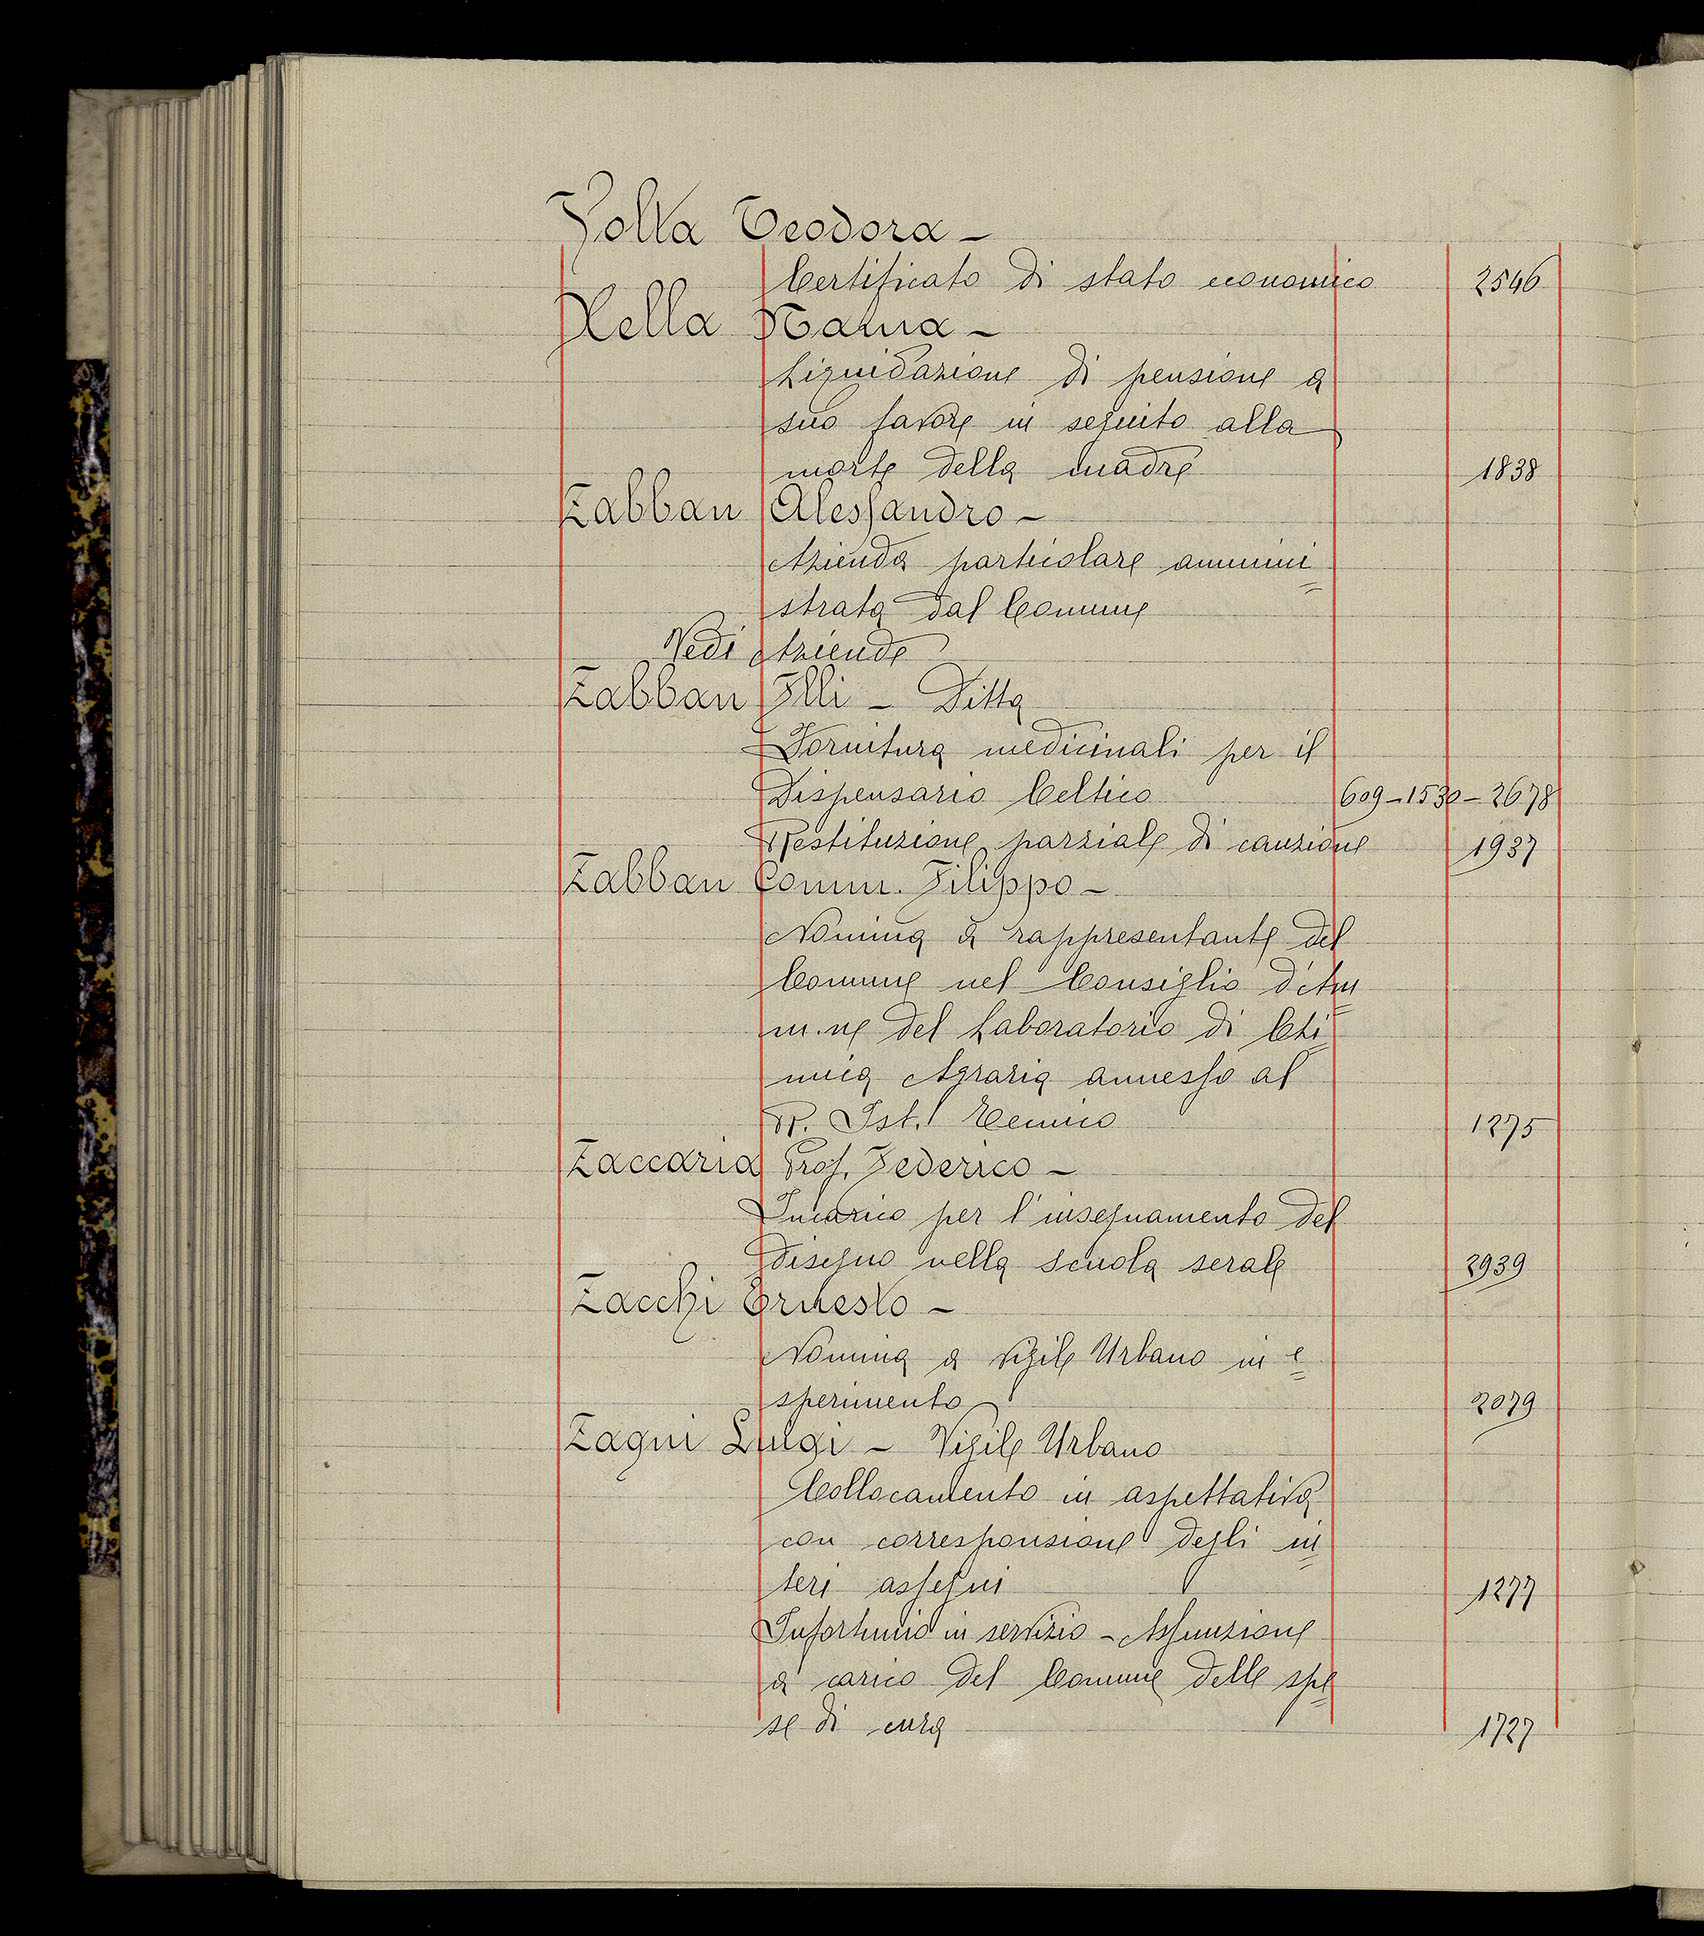 Volta Teodora -
Certificato di stato economico 2546
Xella -
Liquidazione di pensione a
suo favore in seguito alla
morte della madre 1838
Zabban Alessandro -
Azienda particolare ammini=
strata dal Comune
Vedi Aziende
Zabban F.lli - Ditta
Fornitura medicinali per il
Dispensario Celtico 609-1530-2678
Restituzione parziale di cauzione 1937
Zabban Comm. Filippo -
Nomina a rappresentante del
Comune nel Consiglio d'Am=
m.ne del Laboratorio di Chi=
mica Agraria annesso al
R. Ist. Tecnico 1275
Zaccaria Prof. Federico -
Incarico per l'insegnamento del
disegno nella scuola serale 2939
Zacchi Ernesto -
Nomina a Vigile Urbano in e=
sperimento 2079
Zagni Luigi - Vigile Urbano
Collocamento in aspettativa
con corresponsione degli in=
teri assegni 1277
Infortunio in servizio - Assunzione
a carico del Comune delle spe=
se di cura 1727